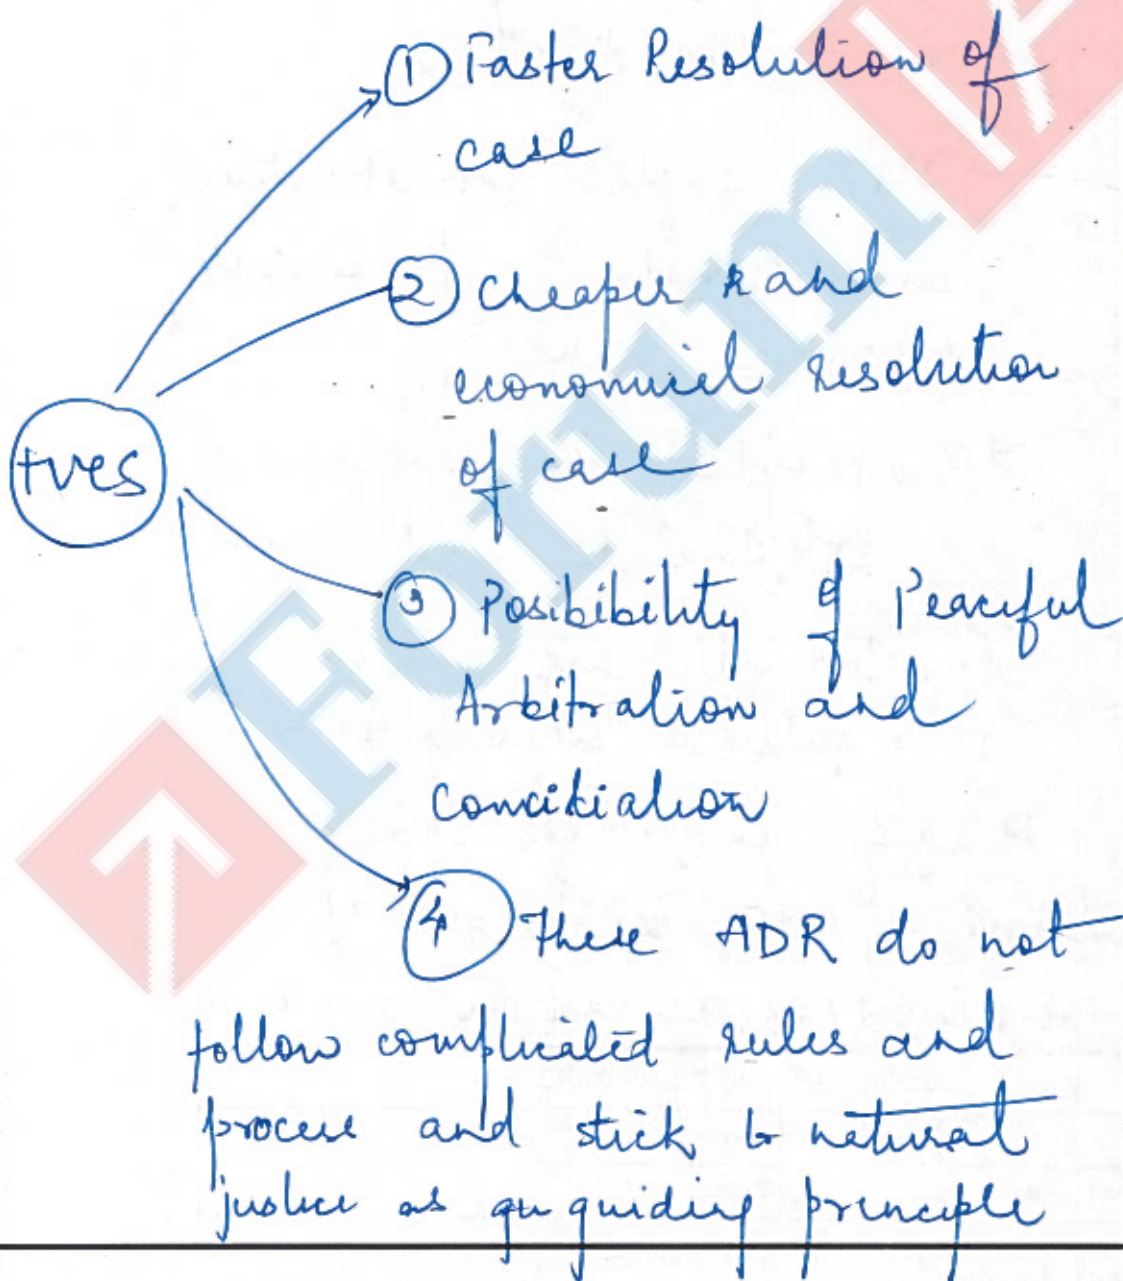 ① Faster Resolution of
case
② Cheaper and
economicel resolution
of case
+ves
③ Posibibility of Peaceful
Arbitration and
conciliation
④ These ADR do not
follow complicated rules and
process and stick to natural
justice as guiding principle
Forum